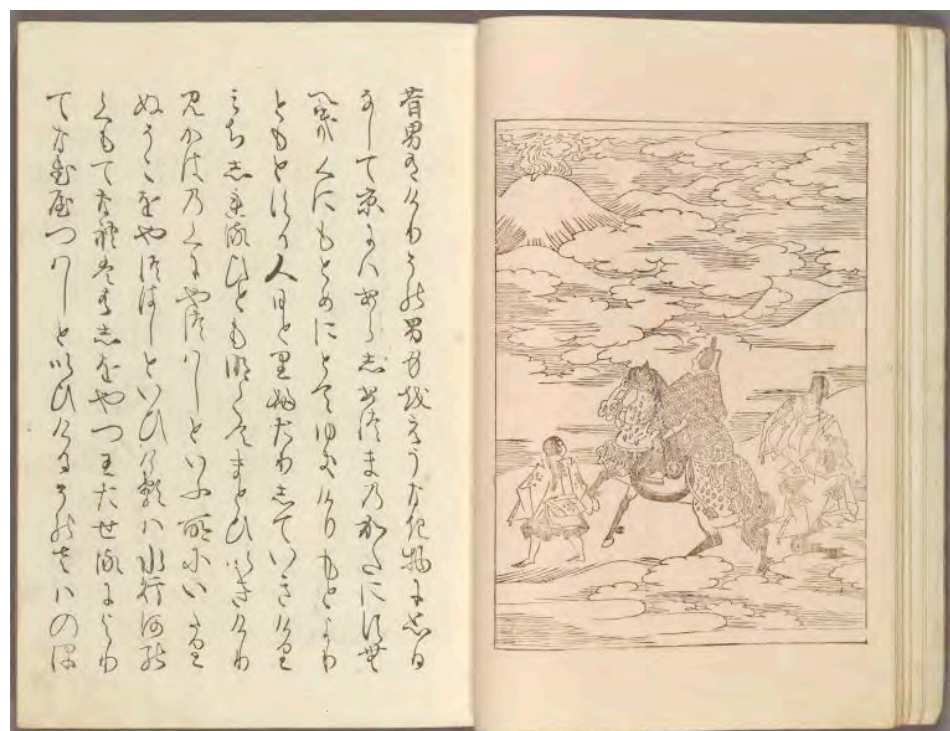 昔男有けりその男身をえうなき物に思ひ
なして京にはあらしあつまのかたにすむ
へきくにもとめにとてゆきけりもとより
ともとする人ひとりふたりしていきけり
みちしれるひともなくてまとひいきけり
みかはのくにやつはしといふ所にいたり
ぬそこをやつはしといひけるは水行河の
くもてなれははしをやつわたせるにより
てなむ屋つはしといひけるそのさはのほ